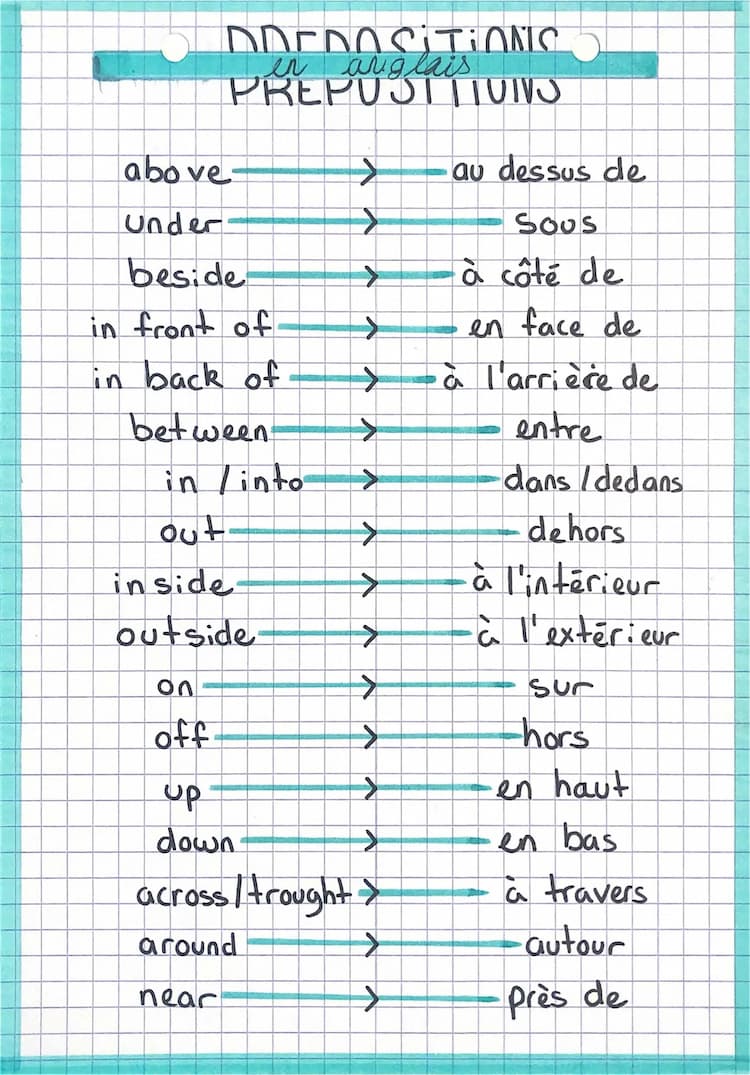 PREPOSITIONS
en anglais
above → au dessus de
under → sous
beside → à côté de
in front of → en face de
in back of → à l'arrière de
between → entre
in / into → dans / dedans
out → dehors
inside → à l'intérieur
outside → à l'extérieur
on → sur
off → hors
up → en haut
down → en bas
across / trought → à travers
around → autour
near → près de